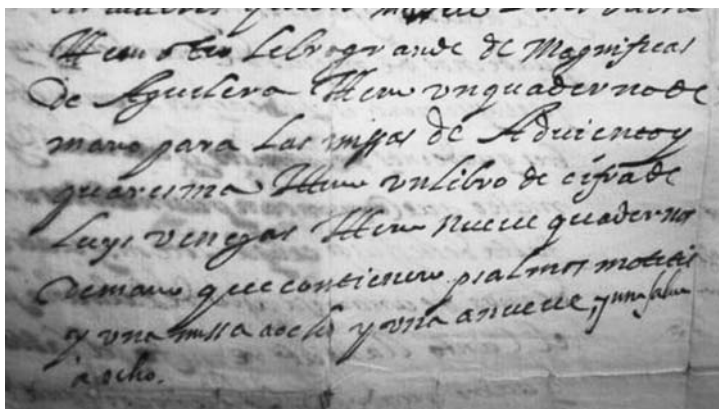 Ittem otro Lebrogrande de Magnificas
de Aguilera Ittem vnquadernode
mano para Las missas de Aduientoy
quaresma Ittem vnlibro de cifrade
Luys venegas Ittem nueue quadernos
demano que contienen psalmos motetes
y vna missa aocho y vna anueue, y una salue
a ocho.